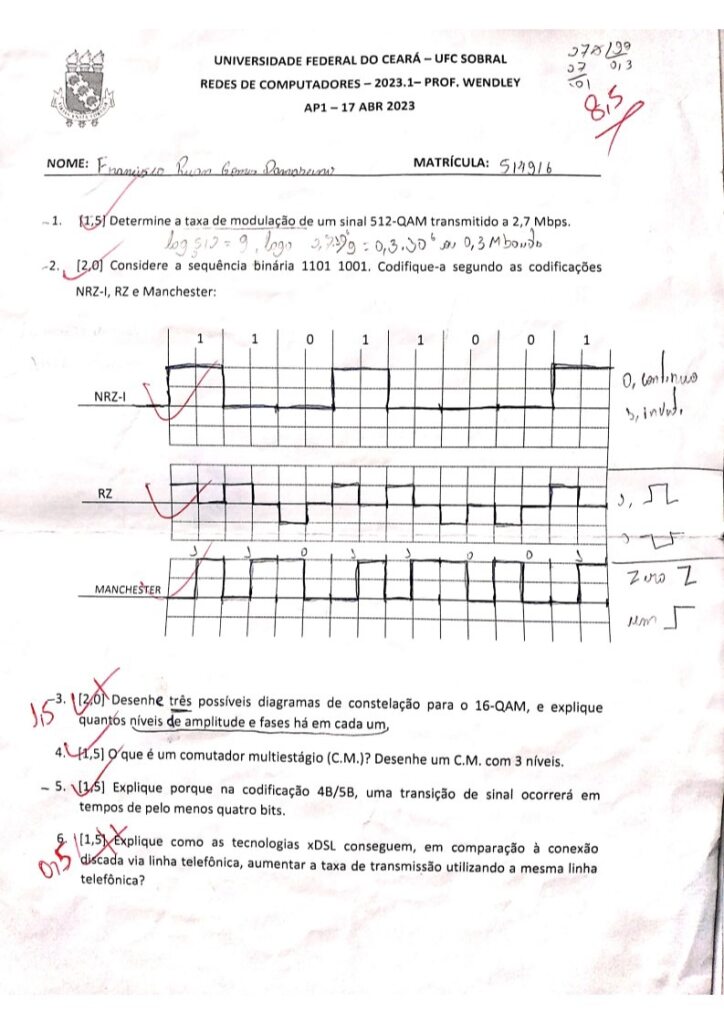 UNIVERSIDADE FEDERAL DO CEARÁ – UFC SOBRAL
REDES DE COMPUTADORES – 2023.1– PROF. WENDLEY
AP1 – 17 ABR 2023
8,5
NOME: Francisco Ruan Gomes
MATRÍCULA: 514916
1. [1,5] Determine a taxa de modulação de um sinal 512-QAM transmitido a 2,7 Mbps.
log 512 = 9, logo
2. [2,0] Considere a sequência binária 1101 1001. Codifique-a segundo as codificações
NRZ-I, RZ e Manchester:
1 1 0 1 1 0 0 1
NRZ-I
0, continuo
RZ
MANCHESTER
Zero
um
3. [2,0] Desenhe três possíveis diagramas de constelação para o 16-QAM, e explique
1,5
quantos níveis de amplitude e fases há em cada um,
4. [1,5] O que é um comutador multiestágio (C.M.)? Desenhe um C.M. com 3 níveis.
5. [1,5] Explique porque na codificação 4B/5B, uma transição de sinal ocorrerá em
tempos de pelo menos quatro bits.
6. [1,5] Explique como as tecnologias xDSL conseguem, em comparação à conexão
0,5
discada via linha telefônica, aumentar a taxa de transmissão utilizando a mesma linha
telefônica?